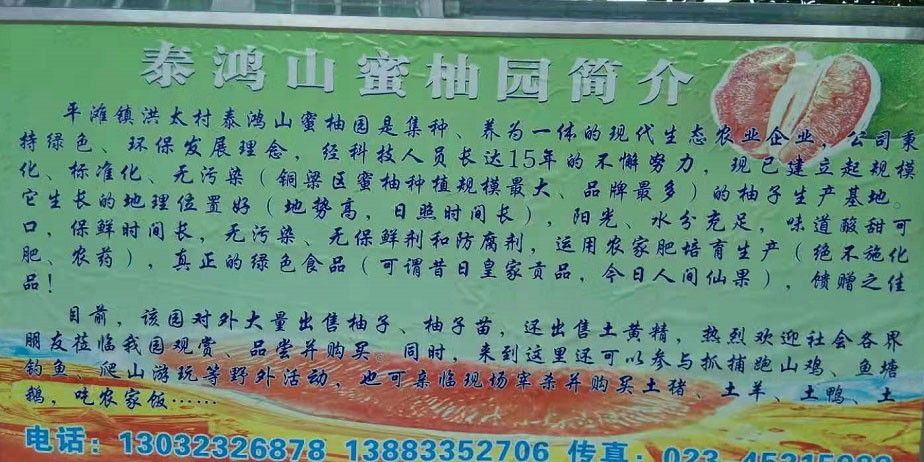 泰鸿山蜜柚园简介
平滩镇洪太村泰鸿山蜜柚园是集种、养为一体的现代生态农业企业，公司秉
持绿色、环保发展理念，经科技人员长达15年的不懈努力，现已建立起规模
化、标准化、无污染（铜梁区蜜柚种植规模最大、品牌最多）的柚子生产基地。
它生长的地理位置好（地势高，日照时间长），阳光、水分充足，味道酸甜可
口，保鲜时间长，无污染、无保鲜剂和防腐剂，运用农家肥培育生产（绝不施化
肥、农药），真正的绿色食品（可谓昔日皇家贡品，今日人间仙果），馈赠之佳
品！
目前，该园对外大量出售柚子、柚子苗，还出售土黄精，热烈欢迎社会各界
朋友莅临我园观赏、品尝并购买。同时，来到这里还可以参与抓捕跑山鸡、鱼塘
钓鱼、爬山游玩等野外活动，也可亲临现场宰杀并购买土猪、土羊、土鸭、土
鹅，吃农家饭……
电话：13032326878 13883352706 传真：023